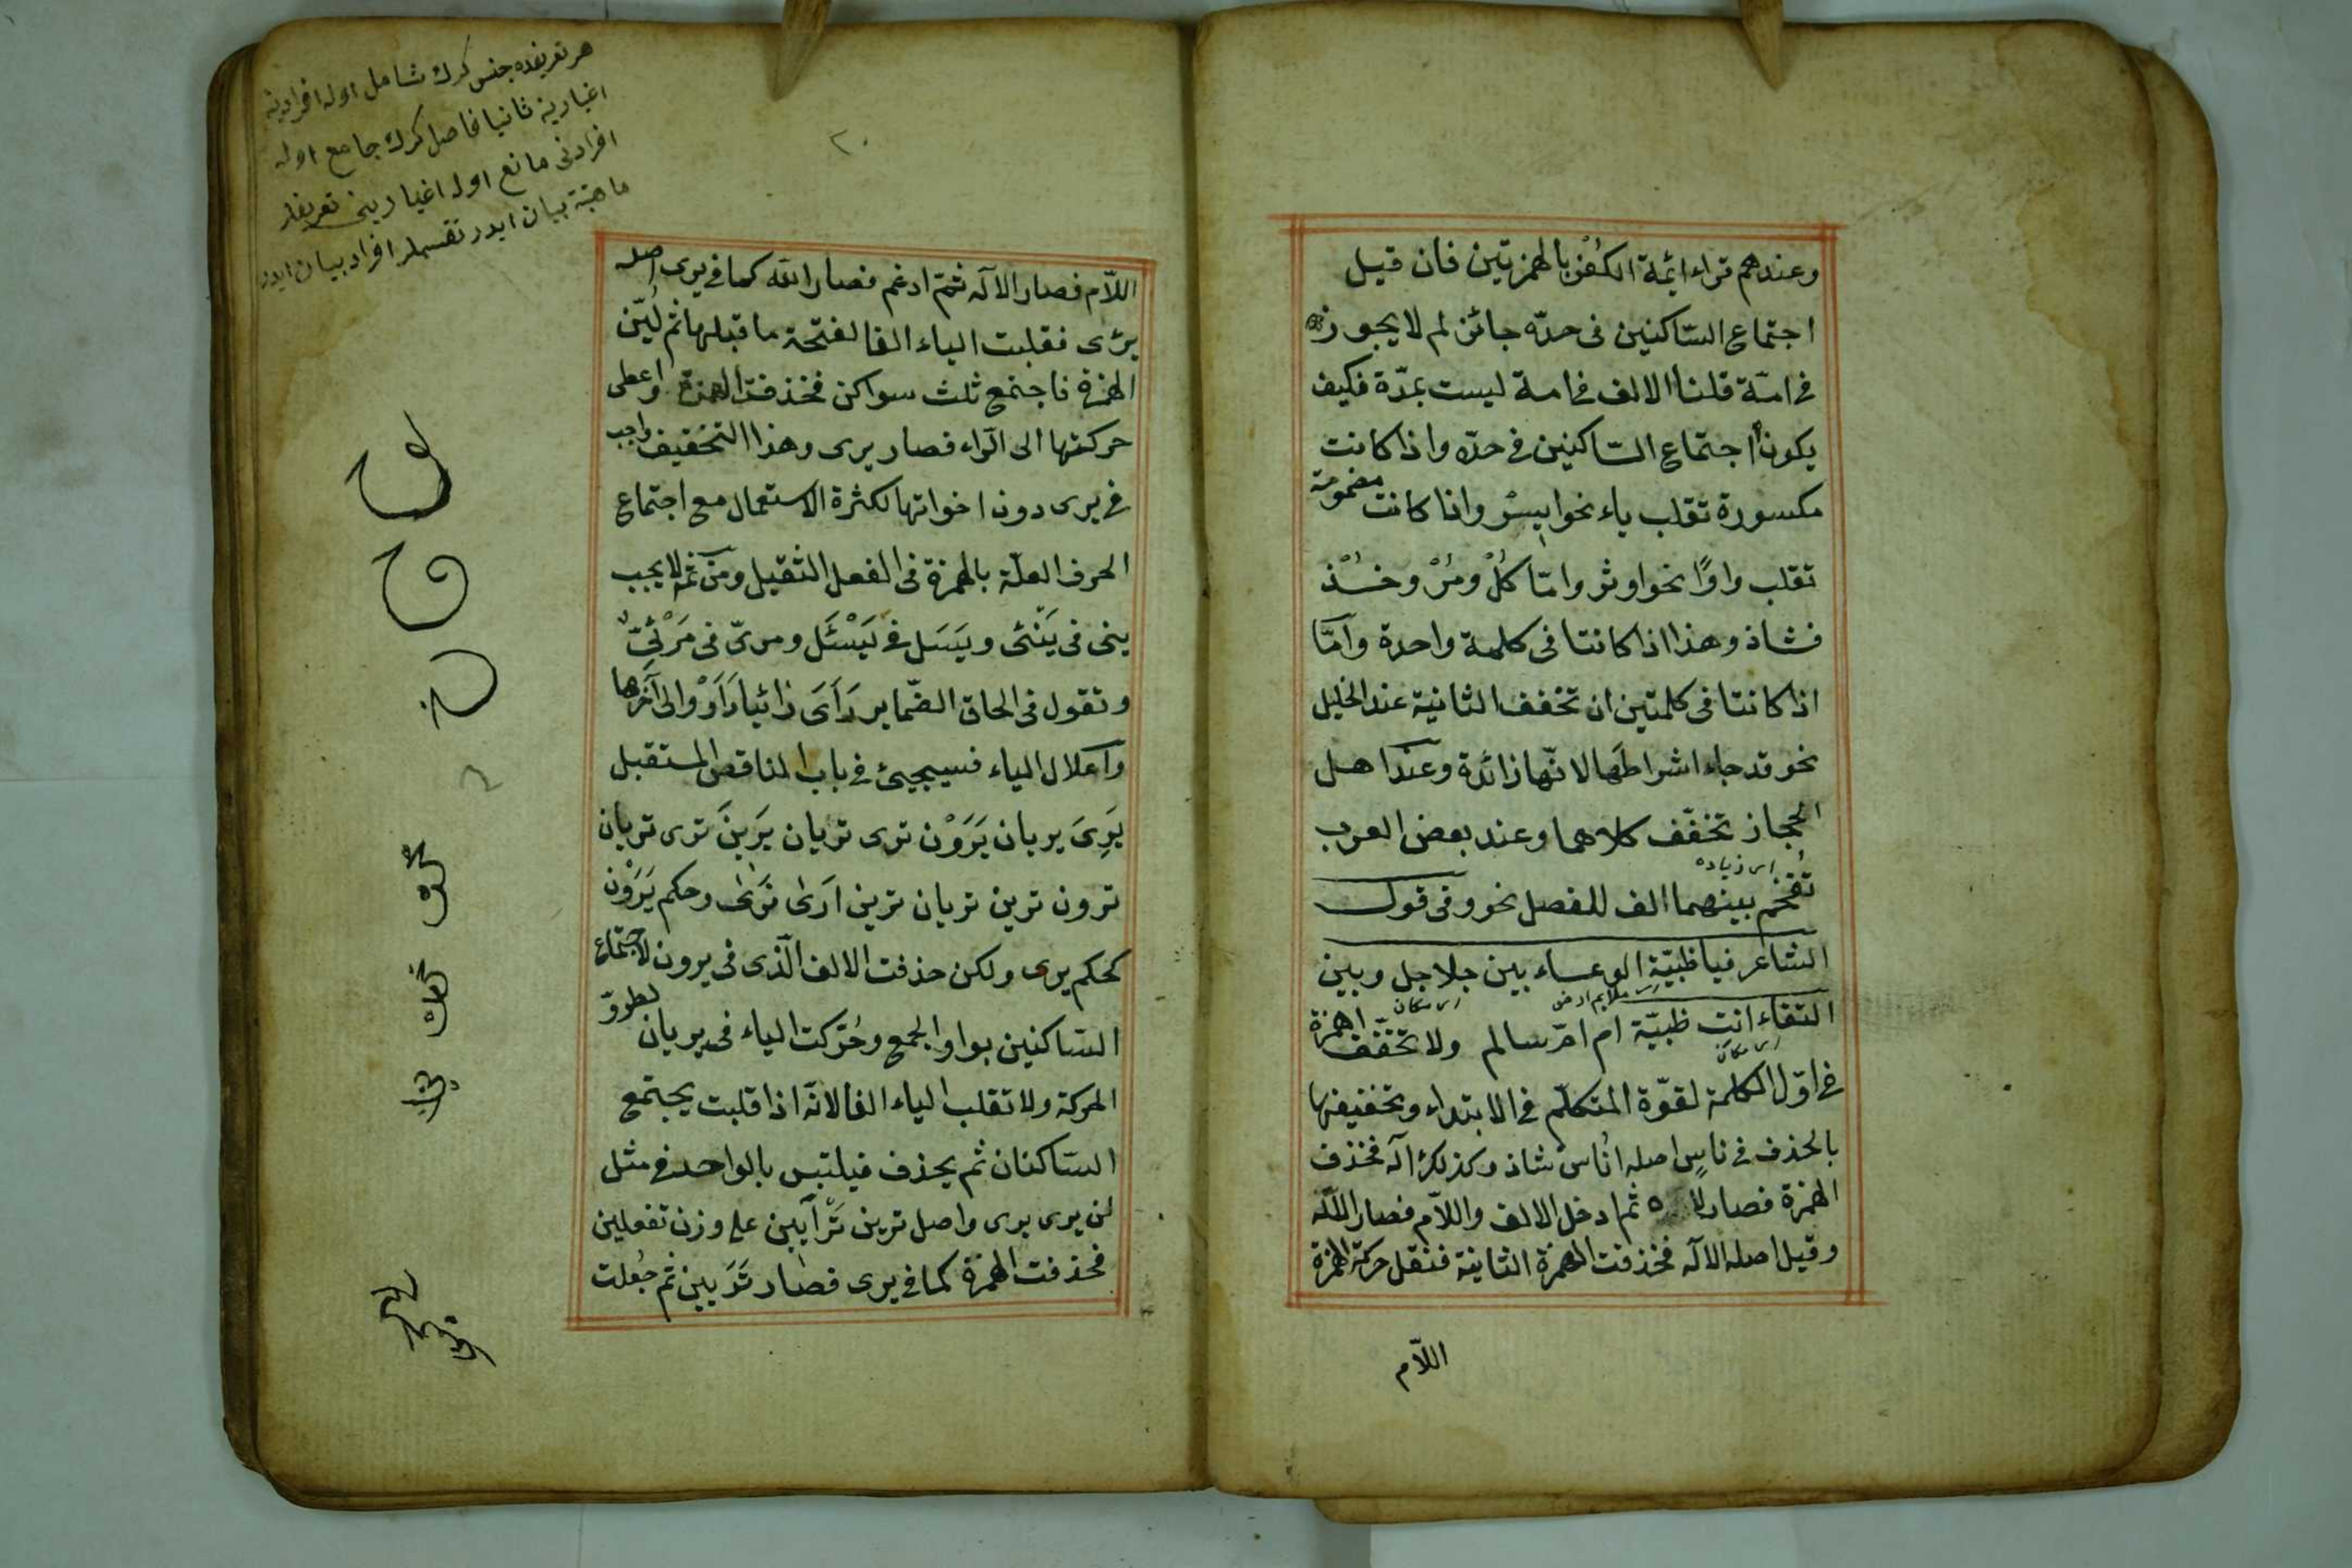 وعندهم قراء ائمة الكفر بالهمزتين فان قيل
اجتماع الساكنين فى حدّه جائز لم لا يجوز
فى امّة قلنا الالف فى امة ليست بمدّة فكيف
يكون اجتماع السّاكنين فى حدّه واذا كانت
مكسورة تقلب ياء نحو ايسر واذا كانت مضمومة
تقلب واوًا نحو اوثر وامّا كُلْ ومُرْ وخُذْ
فشاذ وهذا اذا كانتا فى كلمة واحدة وامّا
اذا كانتا فى كلمتين ان تخفف الثانية عند الخليل
نحو قد جاء اشراطها لانّها زائدة وعند اهل
الحجاز تخفّف كلاهما وعند بعض العرب
اى زياده
تقحم بينهما الف للفصل نحو وفى قول
الشاعر فيا ظبيّة الوعساء بين جلاجل وبين
النقاء انت ظبيّة ام امّ سالم ولا تخفّف الهمزة
فى اوّل الكلمة لقوّة المتكلّم فى الابتداء وتخفيفها
بالحذف فى ناس اصله اُناس شاذ وكذلك اله فحذف
الهمزة فصار لاه ثم ادخل الالف واللّام فصار اللّه
وقيل اصله الاله فحذفت الهمزة الثانية فنقل حركة الهمزة
اللّام
٢٠
هر تعريفده جنس كرك شامل اوله افرادينه
اغيارينه ثانيا فاصل كرك جامع اوله
افرادنى مانع اوله اغيارينى تعريفلر
ماهيته بيان ايدر تقسملر افراد بيان ايدر
اللّام فصار الاله ثمّ ادغم فصار اللّه كما فى يرى اصله
يرئى فقلبت الياء الفا لفتحة ما قبلها ثم لُيّن
الهمزة فاجتمع ثلث سواكن فحذفت الهمزة واعطى
حركتها الى الرّاء فصار يرى وهذا التخفيف واجب
فى يرى دون اخواتها لكثرة الاستعمال مع اجتماع
الحرف العلّة بالهمزة فى الفعل الثقيل ومن ثمّ لا يجب
ينى فى يَنْئى ويَسَل فى يَسْئَل ومرىّ فى مَرْئىّ
وتقول فى الحاق الضّماير رَاَى رَائيا رَاَوْ والى آخرها
واعلال الياء فسيجيئ فى باب الناقص المستقبل
يَرِىَ يريان يَرَوْن ترى تريان يَرَينَ ترى تريان
ترون ترين تريان ترين ارَى نَرَى وحكم يَرَوْن
كحكم يرى ولكن حذفت الالف الّذى فى يرون لاجتماع
السّاكنين بواو الجمع وحُرّكت الياء فى يريان لطروّ
الحركة ولا تقلب الياء الفا لانّه اذا قلبت يجتمع
السّاكنان ثم يحذف فيلتبس بالواحد فى مثل
لن يرى يرى واصل ترين تَرْاَيين على وزن تفعلين
فحذفت الهمزة كما فى يرى فصار تَرَيين ثم جُعلت